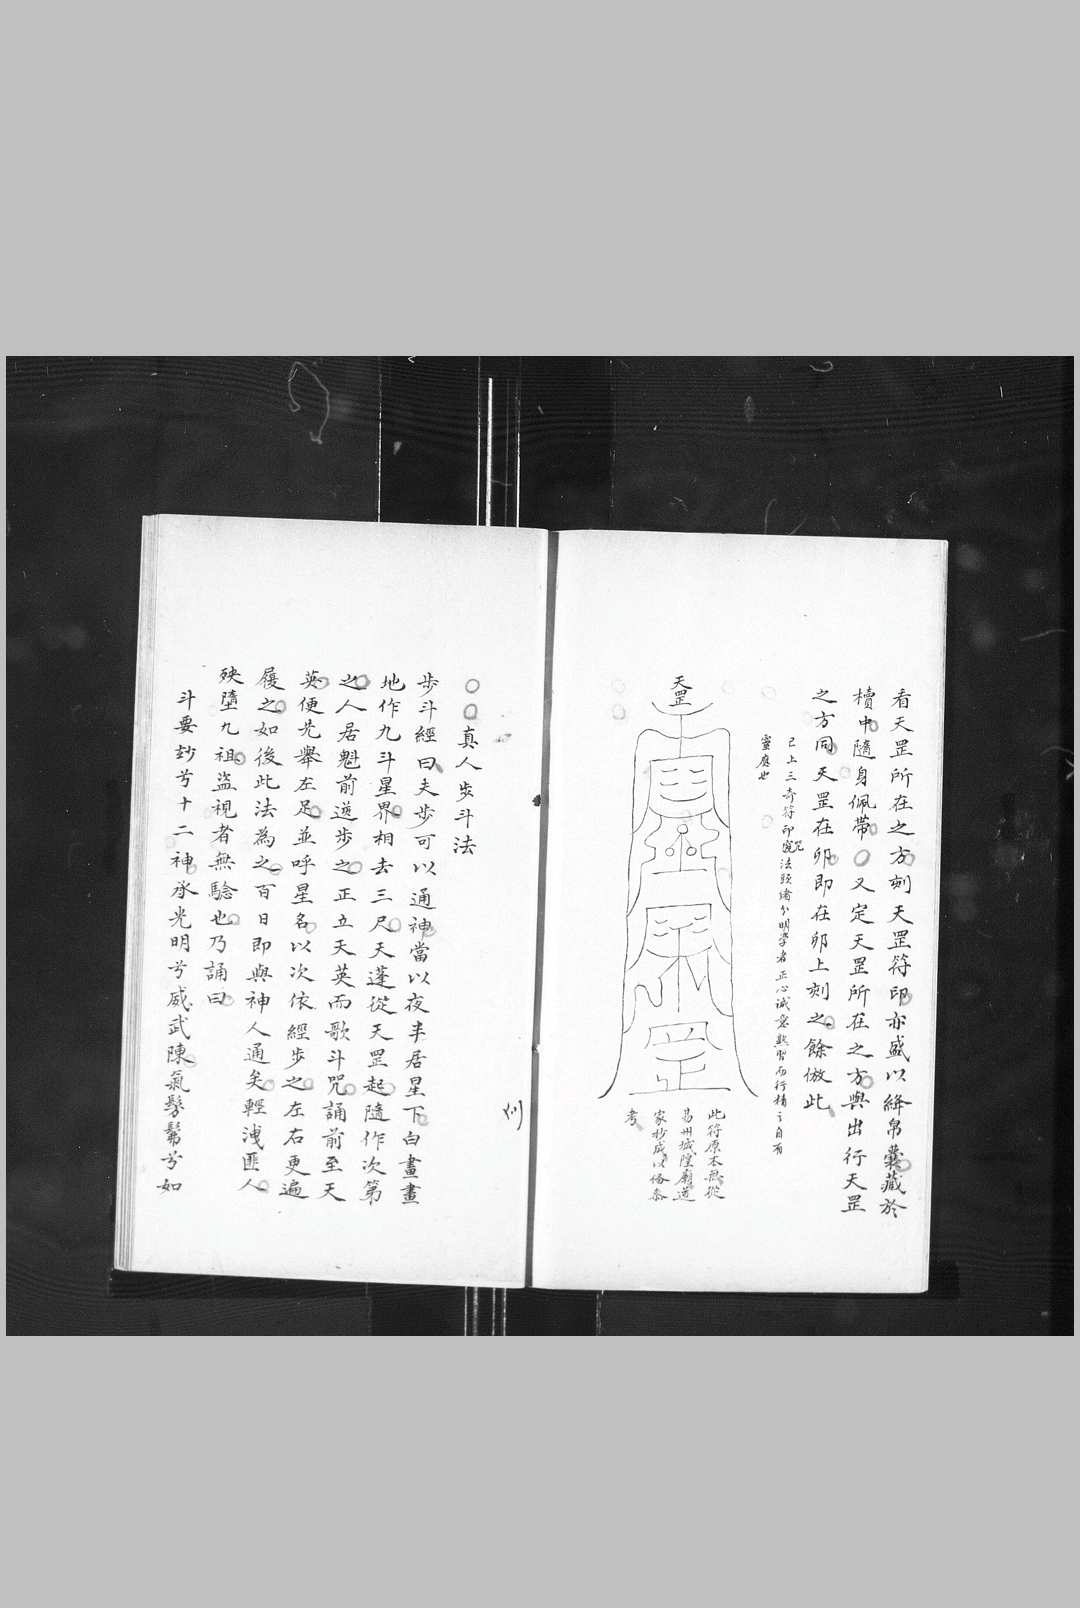 看天罡所在之方刻天罡符印亦盛以絳帛囊藏於
櫝中隨身佩帶〇又定天罡所在之方與出行天罡
之方同天罡在卯即在卯上刻之餘倣此
已上三奇符印咒法頭緒分明學者正心誠意熟習而行積之自有
靈應也
天罡
罡
此符原本無從
易州城隍廟道
家抄成以俗叅
考
〇〇真人步斗法
步斗經曰夫步可以通神當以夜半居星下白畫畫
地作九斗星界相去三尺天蓬從天罡起隨作次第
之人居魁前逆步之正立天英而歌斗咒誦前至天
英便先舉左足並呼星名以次依經步之左右更遍
履之如後此法為之百日即與神人通矣輕洩匪人
殃墮九祖盜視者無驗也乃誦曰
斗要玅兮十二神承光明兮威武陳氣髣髴兮如